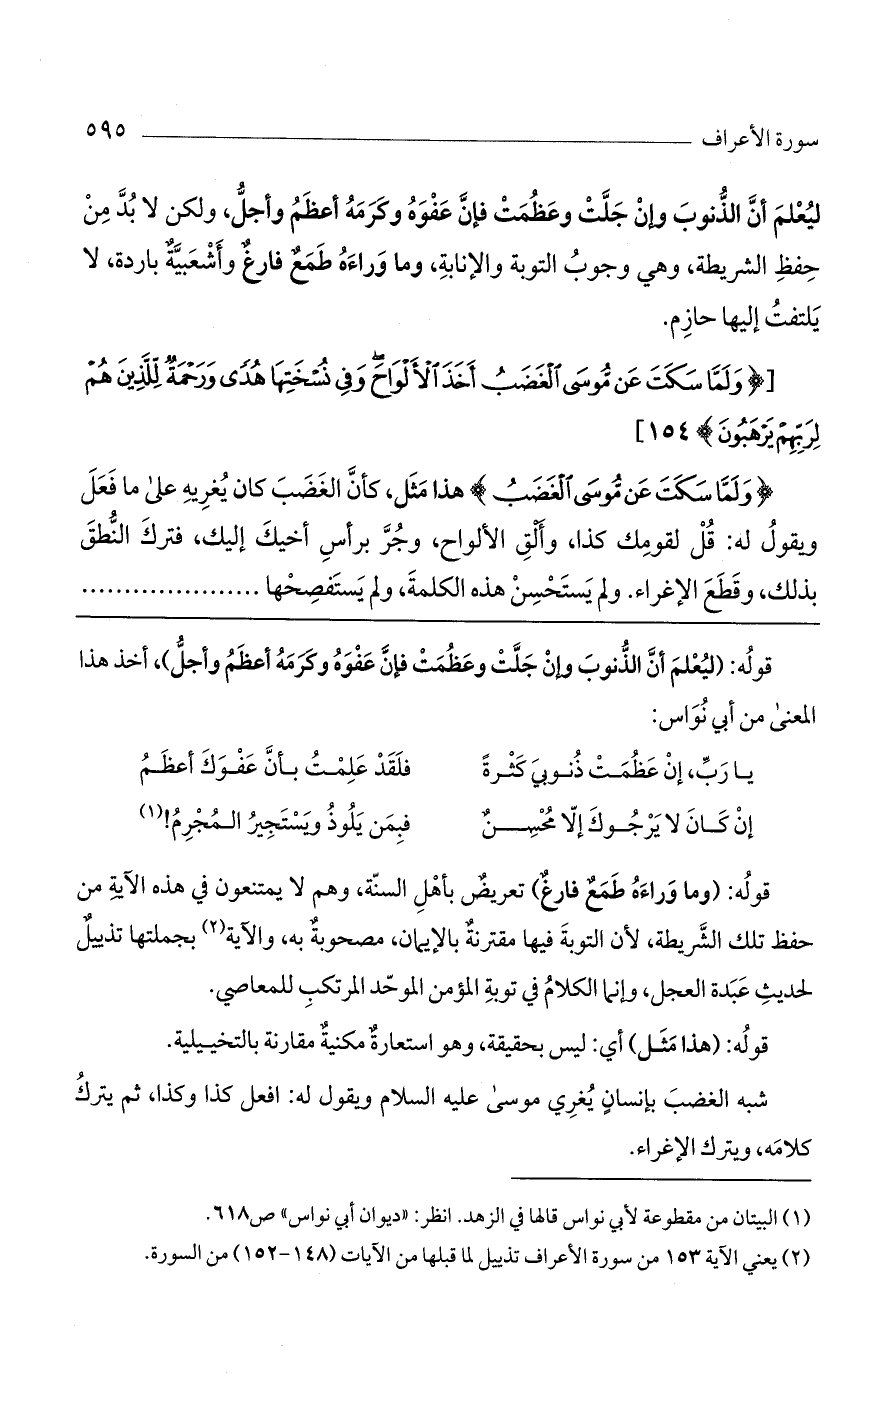 سورة الأعراف ٥٩٥
ليُعْلمَ أنَّ الذُّنوبَ وإنْ جَلَّتْ وعَظُمَتْ فإنَّ عَفْوَهُ وكَرَمَهُ أعظَمُ وأجلُّ، ولكن لا بُدَّ مِنْ
حِفظِ الشريطة، وهي وجوبُ التوبة والإنابةِ، وما وَراءَهُ طَمَعٌ فارغٌ وأَشْعَبيَّةٌ باردة، لا
يَلتفتُ إليها حازِم.
[﴿ وَلَمَّا سَكَتَ عَن مُّوسَى ٱلْغَضَبُ أَخَذَ ٱلْأَلْوَاحَ ۖ وَفِي نُسْخَتِهَا هُدًى وَرَحْمَةٌ لِّلَّذِينَ هُمْ
لِرَبِّهِمْ يَرْهَبُونَ ﴾ ١٥٤]
﴿ وَلَمَّا سَكَتَ عَن مُّوسَى ٱلْغَضَبُ ﴾ هذا مَثَل، كأنَّ الغَضَبَ كان يُغريهِ علىٰ ما فَعَلَ
ويقولُ له: قُلْ لقومِك كذا، وأَلْقِ الألواح، وجُرَّ برأسِ أخيكَ إليك، فتركَ النُّطقَ
بذلك، وقَطَعَ الإغراء. ولم يَستَحْسِنْ هذه الكلمةَ، ولم يَستَفصِحْها .....................
قولُه: (ليُعْلمَ أنَّ الذُّنوبَ وإنْ جَلَّتْ وعَظُمَتْ فإنَّ عَفْوَهُ وكَرَمَهُ أعظَمُ وأجلُّ)، أخذ هذا
المعنىٰ من أبي نُوَاس:
يـا رَبِّ، إنْ عَظُمَـتْ ذُنـوبيَ كَثْـرةً فلَقَدْ عَلِمْـتُ بـأنَّ عَفْـوَكَ أعظَـمُ
إنْ كَـانَ لا يَرْجُـوكَ إلّا مُحْسِـــنٌ فبِمَن يَلُوذُ ويَسْتَجِيرُ الـمُجْرِمُ!(١)
قولُه: (وما وَراءَهُ طَمَعٌ فارغٌ) تعريضٌ بأهْلِ السنّة، وهم لا يمتنعون في هذه الآيةِ من
حفظ تلك الشَّريطة، لأن التوبةَ فيها مقترنةٌ بالإيمان، مصحوبةٌ به، والآية(٢) بجملتها تذييلٌ
لحديثِ عَبَدة العجل، وإنما الكلامُ في توبةِ المؤمن الموحّد المرتكبِ للمعاصي.
قولُه: (هذا مَثَـل) أي: ليس بحقيقة، وهو استعارةٌ مكنيةٌ مقارنة بالتخييلية.
شبه الغضبَ بإنسانٍ يُغرِي موسىٰ عليه السلام ويقول له: افعل كذا وكذا، ثم يتركُ
كلامَه، ويترك الإغراء.
(١) البيتان من مقطوعة لأبي نواس قالها في الزهد. انظر: «ديوان أبي نواس» ص٦١٨.
(٢) يعني الآية ١٥٣ من سورة الأعراف تذييل لما قبلها من الآيات (١٤٨-١٥٢) من السورة.